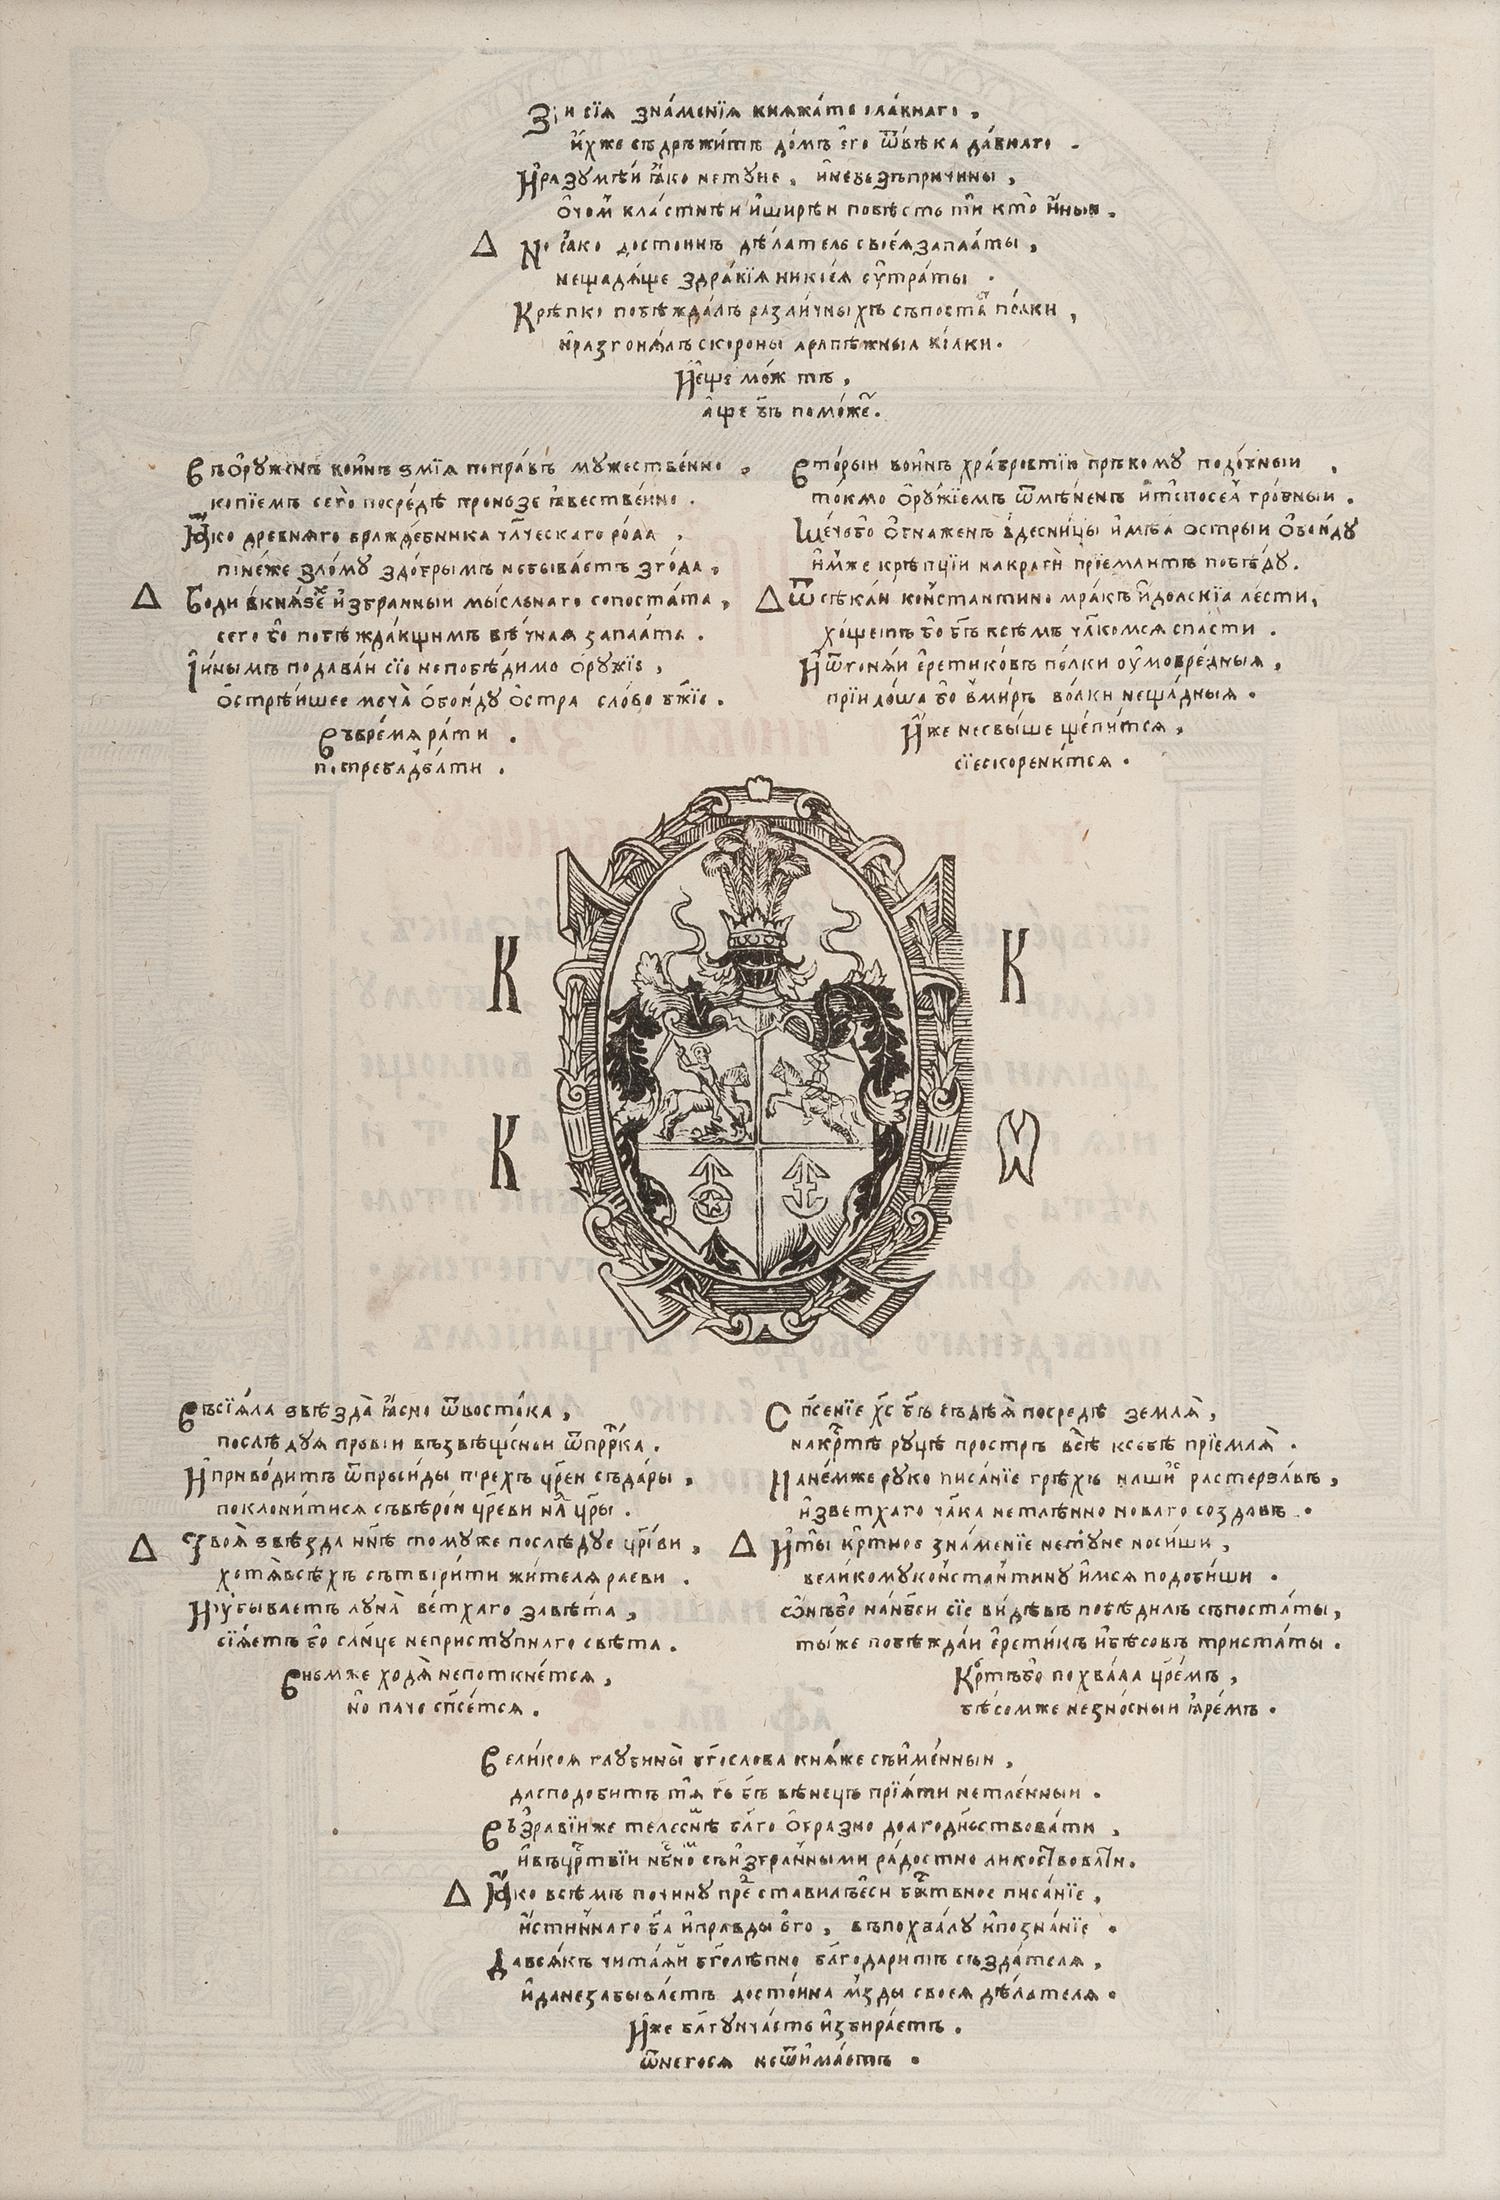 Зри сїѧ зна́менїѧ кнѧжа́те сла́внаго ,
и҆́хже съдръжи́тъ до́мъ е҆го̀ ѿвѣ́ка да́внаго .
И҆разꙋмѣ́й ꙗ҆́ко нетꙋ́не , и҆небезъпричи́ны ,
Но ꙗ҆́ко досто́инъ дѣ́латель своеѧ̀ запла́ты ,
нещадѧ́ще здра́вїѧ никіеѧ̀ оу҆тра́ты .
Крѣ́пко побѣжда́лъ разли́чныхъ съпоста́тъ по́лки ,
и҆разгонѧ́лъ
И҆еще мо́жетъ ,
а҆́ще бг҃ъ помо́же .
Въѻ҆рꙋже́нъ во́инъ ѕмїѧ попра́въ мꙋ́жественно ,
копїе́мъ сего̀ посре́дѣ пронозе ꙗ҆вестве́нно .
Ꙗ҆́ко дре́внѧго вражде́бника чл҃ческаго ро́да ,
поне́же зло́мꙋ здо́брымъ небыва́етъ зго́да ,
Бо́ди в кнѧ́же и҆збра́нный мы́сльнаго сопоста́та ,
сего бо побѣжда́ющимъ вѣ́чнаѧ запла́та .
И҆и́нымъ подава́й сїе непобѣди́мо ѻ҆рꙋ́жїе ,
ѻ҆стрѣ́йшее меча̀ ѻ҆бою́дꙋ ѻ҆стра сло́во бж҃їе .
Въвре́мѧ ра́ти .
Вторы́й во́инъ хра́бростїю пръвомꙋ подо́бный ,
то́кмо ѻ҆рꙋ́жїемъ ѿмѣ́ненъ
ѻ҆бнаже́нъ вдесни́цы и҆мѣ́ѧ ѻстры́й ѻ҆бою́дꙋ
и҆́мже крѣ́пцїи на врагѝ прїе́млютъ побѣ́дꙋ .
Ѿсѣка́й ко́нстантино мра́къ и҆́долскїѧ ле́сти ,
хо́щетъ бо бг҃ъ всѣ́мъ чл҃комсѧ спасти .
И҆ѿгонѧ́й е҆ретико́въ по́лки оу҆мовре́дныѧ ,
прїидо́ша бо вми́ръ во́лки неща́дныѧ .
И҆́же несвы́ше щепи́тсѧ ,
сїе́ искорени́тсѧ .
К К
К Ѡ
Въсїѧ́ла ѕвѣзда̀ ꙗ҆́сно ѿвосто́ка ,
послѣ́дꙋѧ провѣ́щеной ѿпр҇ро́ка .
И҆приво́дитъ ѿпръси́ды трехъ цр҃ей съда́ры ,
поклони́тисѧ съвѣ́рою цр҃еви
Твоѧ̀ ѕвѣзда нн҃ѣ томꙋже послѣ́дꙋе цр҃еви ,
хотѧ́ всѣ́хъ сътвори́ти жи́телѧ раеви .
И҆ꙋ́бываетъ лꙋна̀ ве́тхаго завѣ́та ,
сїѧ́етъ бо сл҃нце непристꙋ́пнаго свѣта .
Вне́мже ходѧ̀ непоткне́тсѧ ,
но паче сп҃се́тсѧ .
Сп҃се́нїе хс҃ бг҃ъ съдѣ́ѧ посредѣ землѧ̀ ,
накр҇тѣ рꙋцѣ̀ простръ всѣ̀ ксебѣ прїемлѧ̀ .
Нане́мже рꙋкописа́нїе грѣ́хъ на́ши́хъ растерза́въ ,
и҆зветхаго чл҃ка нетлѣ́нно новаго создавъ .
И҆ты̀ кр҇тное зна́менїе нетꙋ́не но́сиши ,
вели́комꙋ ко́нстанти́нꙋ и҆́мсѧ подо́биши .
ѻ҆́нъ бо нанб҃си сїе ви́дѣвъ побѣди́лъ съпоста́ты ,
ты́же побѣжда́й е҆рети́къ и҆бѣ́совъ триста́ты .
Кр҇тъ бо похвала̀ цр҃е́мъ ,
бѣ́сом же незно́сный ꙗ҆ре́мъ .
Вели́коѧ глꙋбины̀ бг҃ослова кнѧ́же съи҆ме́нный ,
дасподо́битъ тѧ̀ гь҃ бг҃ъ вѣ́нецъ прїѧ́ти нетле́нный .
Въздра́вїи же теле́снѣ бл҃гоѻ҆бра́зно долгоде́нствова́ти ,
и҆въцр҇твїи нбⷭ҇но съи҆збра́нными ра́достно ликовъствова́ти .
Ꙗ҆́ко всѣ́мъ по чи́нꙋ пре́ставилъ є҆си бж҇твное писа́нїе ,
и҆́стиннаго бг҃а и҆пра́вды е҆го , въпохва́лꙋ и҆позна́нїе .
Да всѧ́къ чита́ѧй бг҃олѣ́пно бл҃годари́тъ създа́телѧ ,
и҆данезабыва́етъ досто́йна мзды̀ своеѧ̀ дѣ́лателѧ .
И҆́же бл҃гꙋю ча́сть и҆збира́етъ .
ѿнегосѧ неѿи҆ма́етъ .